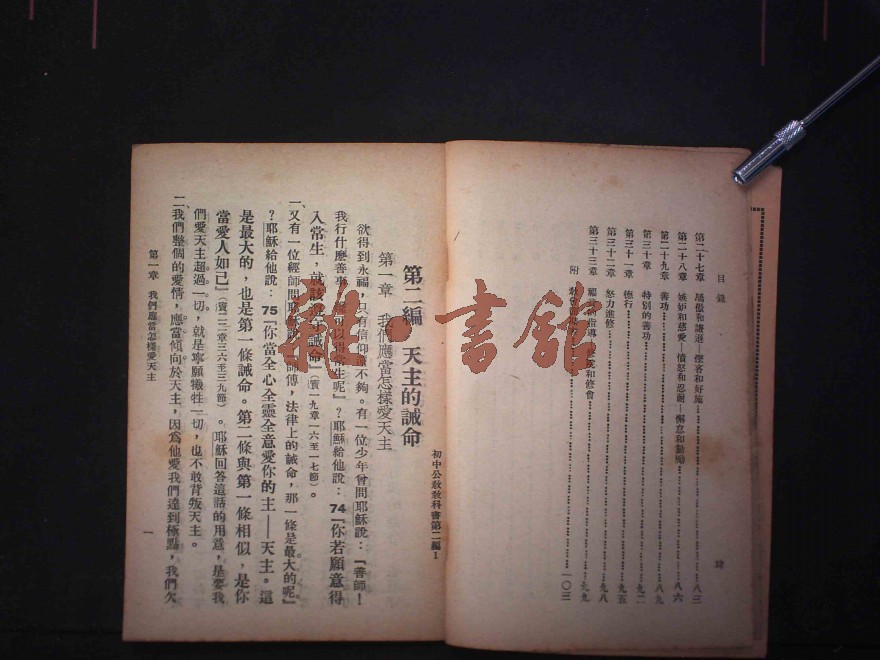 目錄
第二十七章 驕傲和謙遜—慳吝和好施 八三
第二十八章 嫉妒和慈愛—憤怒和忍耐—懈怠和勤勵 八六
第二十九章 善功 八九
第三十章 特別的善功 九二
第三十一章 德行 九五
第三十二章 努力進修 九八
第三十三章 福 指導 和修會 九九
附 一〇三
肆
雜·書館
初中公教教科書第二編 1
第二編 天主的誡命
第一章 我們應當怎樣愛天主
欲得到永福，只有信仰還不夠。有一位少年曾問耶穌說：「善師！
我行什麼善事，纔可以得常生呢」？耶穌給他說：74「你若願意得
入常生，就該遵守誡命」（瑪一九章一六至一七節）。
一、又有一位經師問耶穌說：「師傅，法律上的誡命，那一條是最大的呢」
？耶穌給他說：75「你當全心全靈全意愛你的主——天主。這
是最大的，也是第一條誡命。第二條與第一條相似，是你
當愛人如己」（瑪二二章三六至三九節）。耶穌回答這話的用意，是要我
們愛天主超過一切，就是寧願犧牲一切，也不敢背叛天主。
二、我們整個的愛情，應當傾向於天主，因為他愛我們達到極點，我們欠
第一章 我們應當怎樣愛天主
一